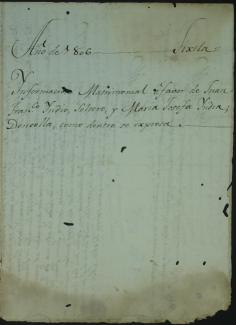 Año de 1806 Sixila
Ynformacion Matrimonial a favor de Juan
Fran.co Yndio, Soltero, y Maria Josefa Yndia,
Doncella, como dentro se expresa